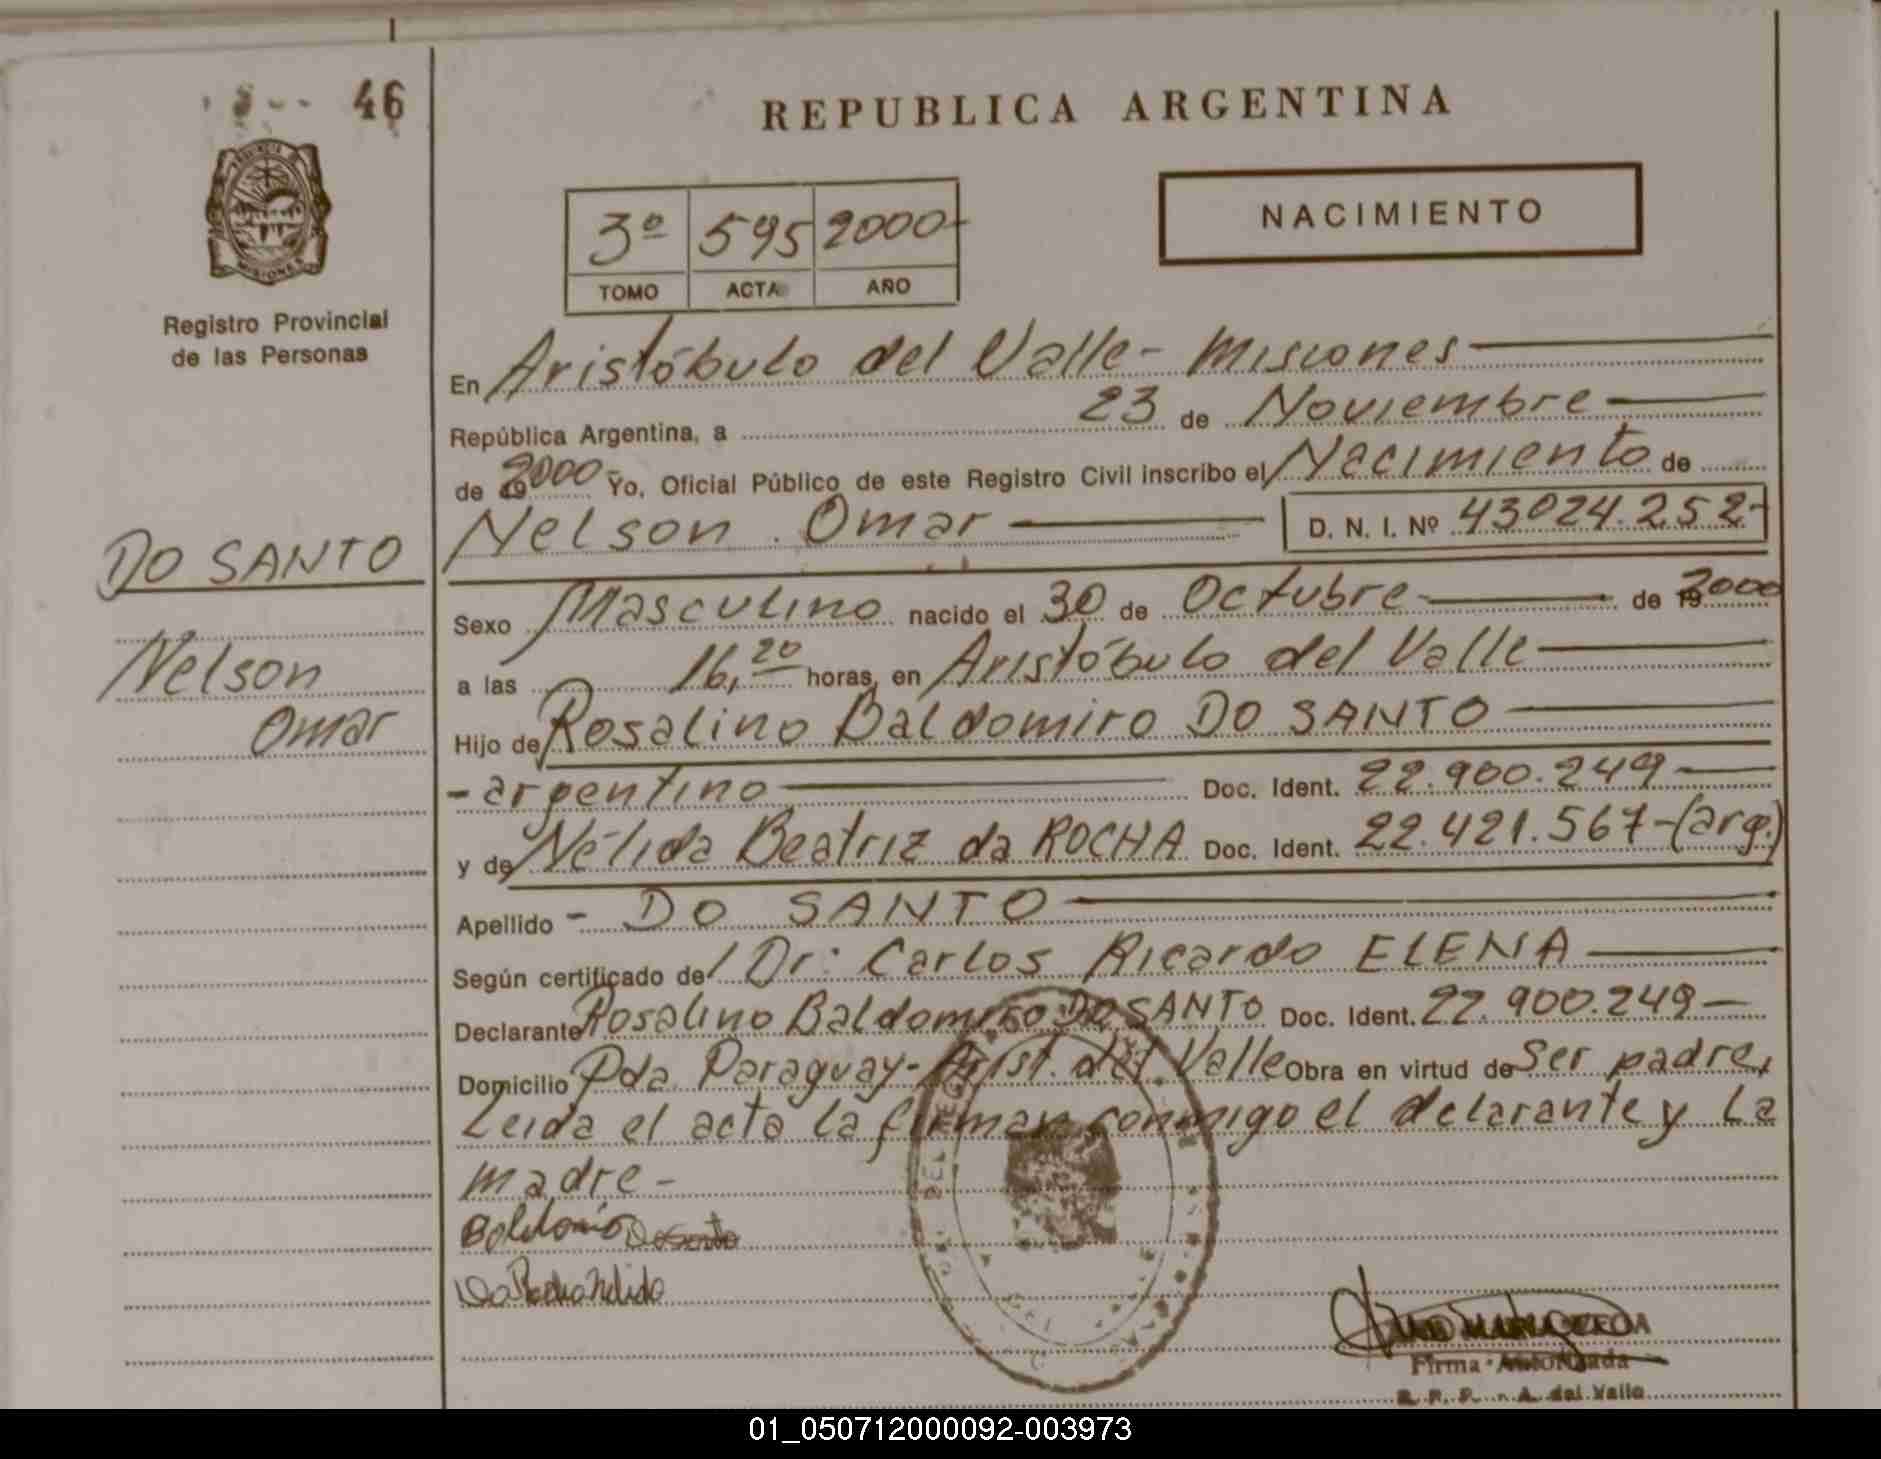 46
REPUBLICA ARGENTINA
MISIONES
Registro Provincial
de las Personas
3º 595 2000-
TOMO ACTA AÑO
NACIMIENTO
En Aristóbulo del Valle - Misiones
República Argentina, a 23 de Noviembre
de 19 2000 Yo, Oficial Público de este Registro Civil inscribo el Nacimiento de
Nelson Omar D. N. I. Nº 43024.252-
DO SANTO
Nelson
Omar
Sexo Masculino nacido el 30 de Octubre de 19 2000
a las 16,20 horas, en Aristóbulo del Valle
Hijo de Rosalino Baldomiro DO SANTO
-argentino Doc. Ident. 22.900.249
y de Nélida Beatriz da ROCHA Doc. Ident. 22.421.567-(arg.)
Apellido - DO SANTO
Según certificado de Dr: Carlos Ricardo ELENA
Declarante Rosalino Baldomiro DO SANTO Doc. Ident. 22.900.249-
Domicilio Pda. Paraguay-Arist. del Valle Obra en virtud de Ser padre,
Leida el acta la firman conmigo el declarante y La
madre-
Da Rocha Nelida
Firma Autorizada
R. P. P. - A. del Valle
01_050712000092-003973